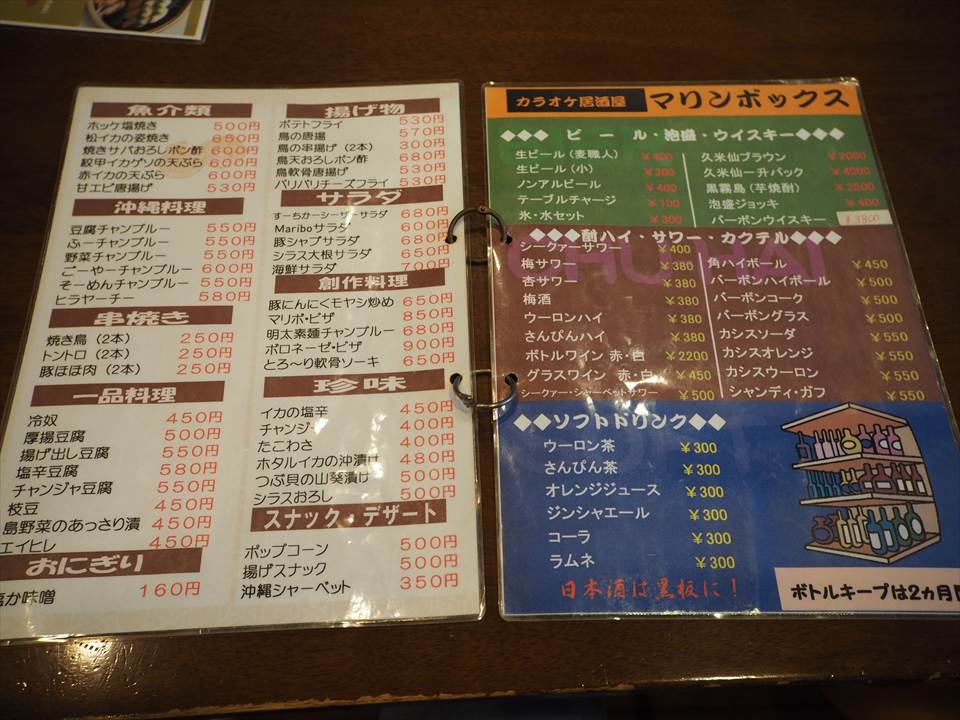 魚介類
ホッケ塩焼き 500円
松イカの姿焼き 650円
焼きサバおろしポン酢 600円
紋甲イカゲソの天ぷら 600円
赤イカの天ぷら 600円
甘エビ唐揚げ 530円
沖縄料理
豆腐チャンプルー 550円
ふーチャンプルー 550円
野菜チャンプルー 550円
ごーやーチャンプルー 600円
そーめんチャンプルー 550円
ヒラヤーチー 580円
串焼き
焼き鳥（2本） 250円
トントロ（2本） 250円
豚ほほ肉（2本） 250円
一品料理
冷奴 450円
厚揚豆腐 500円
揚げ出し豆腐 550円
塩辛豆腐 580円
チャンジャ豆腐 550円
枝豆 450円
島野菜のあっさり漬 450円
エイヒレ 450円
おにぎり
か味噌 160円
揚げ物
ポテトフライ 530円
鳥の唐揚 570円
鳥の串揚げ（2本） 300円
鳥天おろしポン酢 680円
鳥軟骨唐揚げ 530円
パリパリチーズフライ 530円
サラダ
すーちかーシーザーサラダ 680円
Maribоサラダ 600円
豚シャブサラダ 680円
シラス大根サラダ 650円
海鮮サラダ 700円
創作料理
豚にんにくモヤシ炒め 650円
マリボ・ピザ 850円
明太素麺チャンプルー 680円
ボロネーゼ・ピザ 900円
とろ～り軟骨ソーキ 650円
珍味
イカの塩辛 450円
チャンジー 400円
たこわさ 400円
ホタルイカの沖漬け 480円
つぶ貝の山葵漬け 500円
シラスおろし 500円
スナック・デザート
ポップコーン 500円
揚げスナック 500円
沖縄シャーベット 350円
カラオケ居酒屋 マリンボックス
◆◆◆ ビール・泡盛・ウイスキー◆◆◆
生ビール（麦職人） ￥400
生ビール（小） ￥300
ノンアルビール ￥400
テーブルチャージ ￥100
氷・水セット ￥300
久米仙ブラウン ￥2000
久米仙一升パック ￥4000
黒霧島（芋焼酎） ￥2500
泡盛ジョッキ ￥400
バーボンウイスキー ￥3800
◆◆◆酎ハイ・サワー・カクテル◆◆◆
シークァーサワー ￥400
梅サワー ￥380
杏サワー ￥380
梅酒 ￥380
ウーロンハイ ￥380
さんぴんハイ ￥380
ボトルワイン 赤・白 ￥2200
グラスワイン 赤・白 ￥450
シークァーサー・シャーベットサワー ￥500
角ハイボール ￥450
バーボンハイボール ￥500
バーボンコーク ￥500
バーボングラス ￥500
カシスソーダ ￥550
カシスオレンジ ￥550
カシスウーロン ￥550
シャンディ・ガフ ￥550
◆◆ソフトドリンク◆◆
ウーロン茶 ￥300
さんぴん茶 ￥300
オレンジジュース ￥300
ジンジャエール ￥300
コーラ ￥300
ラムネ ￥300
日本酒は黒板に！
ボトルキープは2ヵ月